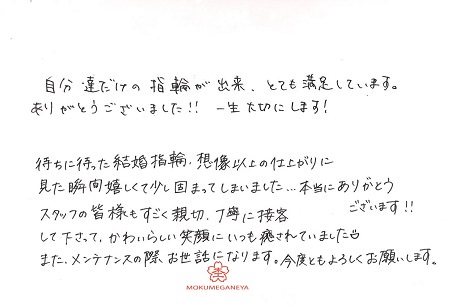 自分達だけの指輪が出来、とても満足しています。
ありがとうございました!! 一生大切にします!
待ちに待った結婚指輪。想像以上の仕上がりに
見た瞬間嬉しくて少し固まってしまいました…本当にありがとう
ございます!!
スタッフの皆様もすごく親切、丁寧に接客
して下さって、かわいらしい笑顔にいつも癒されていました
また、メンテナンスの際お世話になります。今度ともよろしくお願いします。
MOKUMEGANEYA